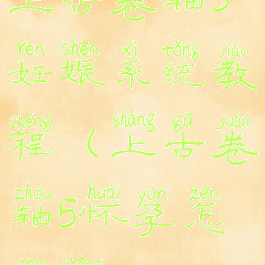 上古卷轴5
rèn shēn xì tǒng jiào
妊娠系统教
chéng shàng gǔ juàn
程(上古卷
zhóu huái yùn zěn
轴5怀孕怎